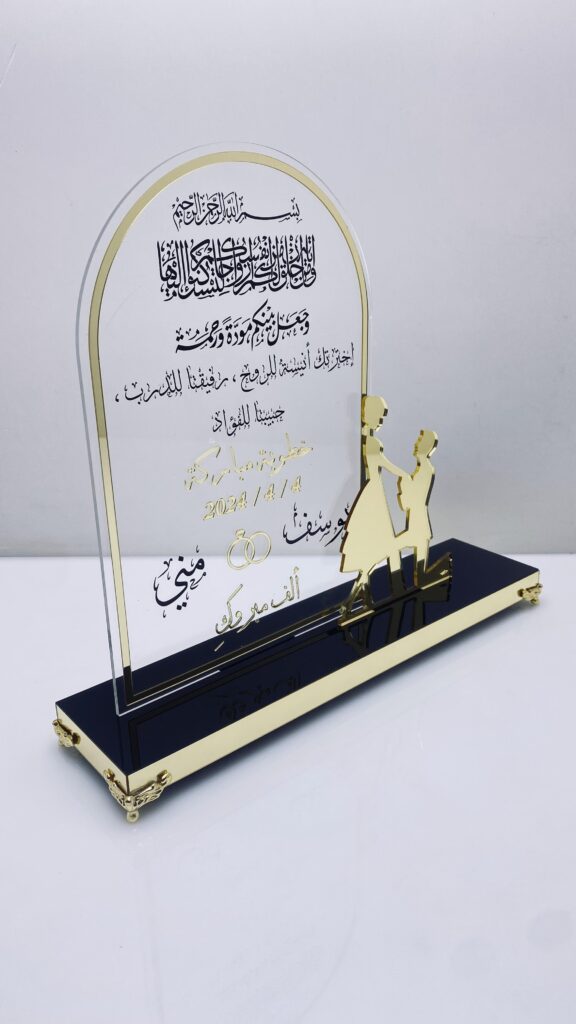 بسم الله الرحمن الرحيم
ومن آياته أن خلق لكم من أنفسكم أزواجا لتسكنوا إليها
وجعل بينكم مودة ورحمة
إخترتك أنيسة للروح ، رفيقتا للدرب ،
حبيبتا للفؤاد
خطوبة مباركة
2024/4/4
يوسف
مني
ألف مبروك